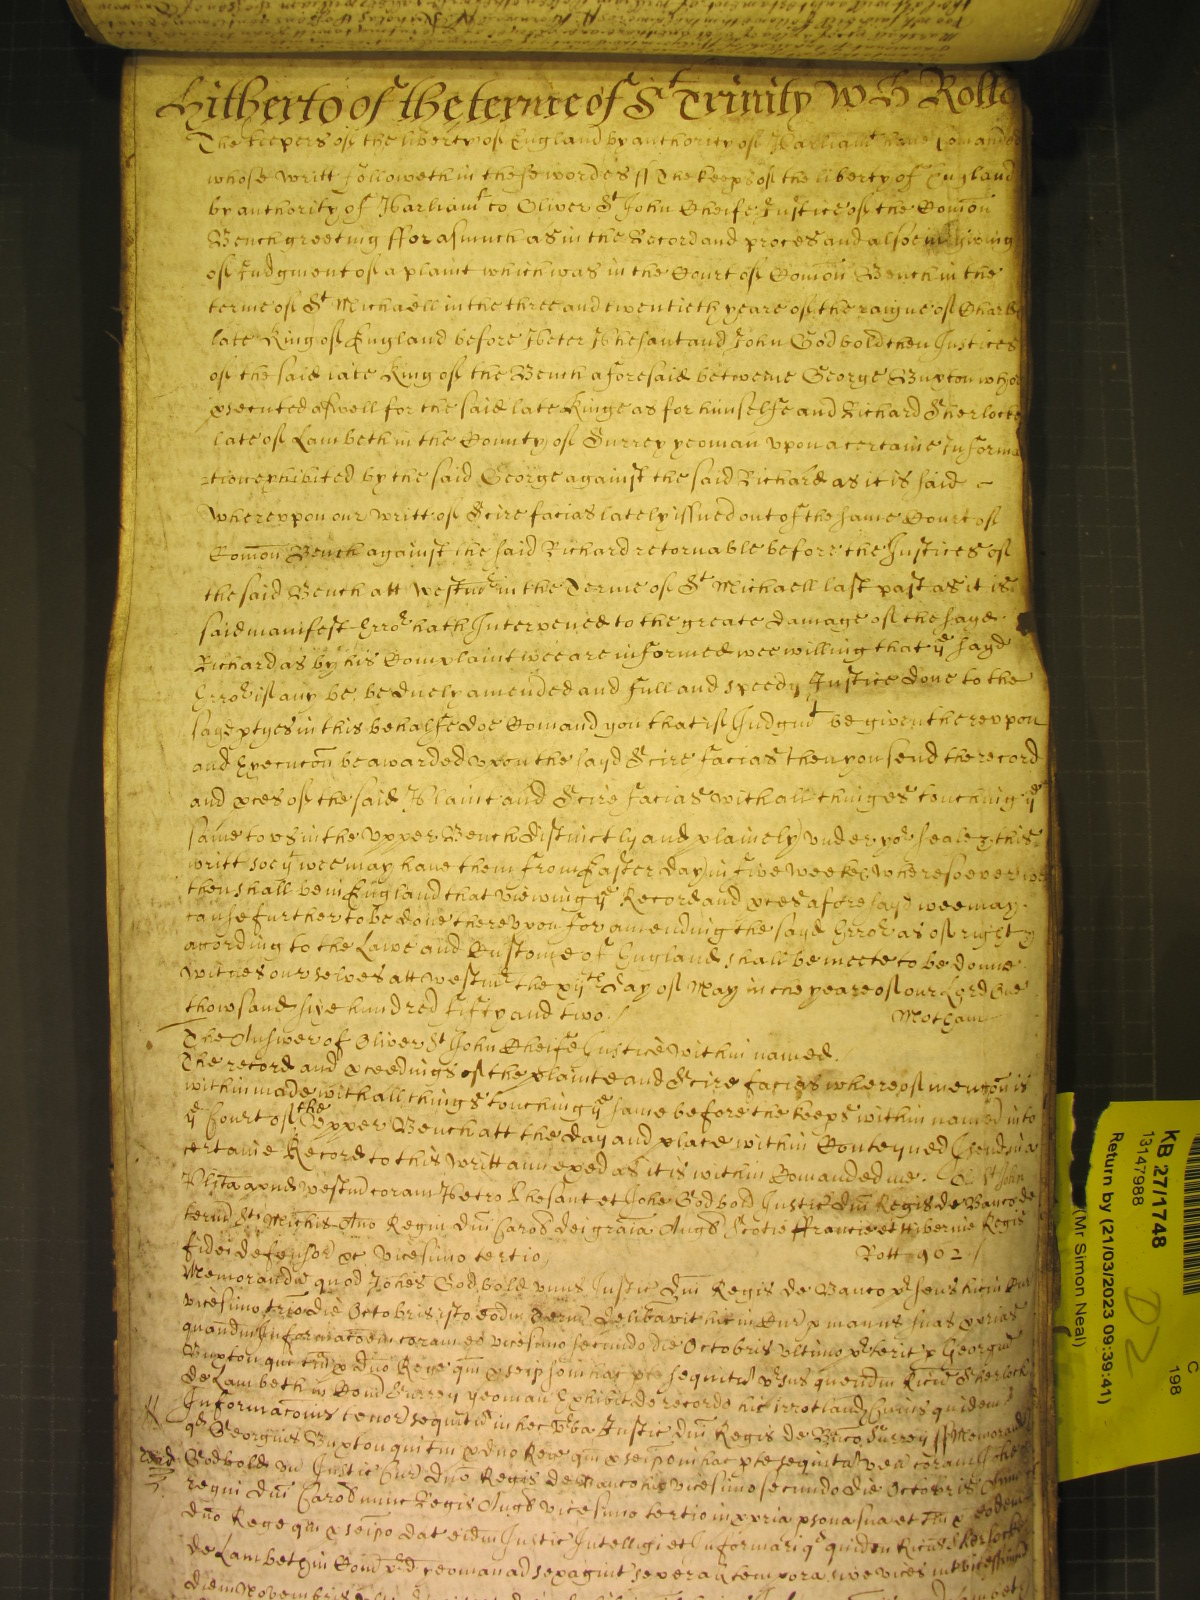 Hitherto of the terme of St Trinity W H Rolle
The keepers of the liberty of England by authority of Parliamt have Comanded
whose writt followeth in these wordes ss The keeps of the liberty of England
by authority of Parliamt to Oliver St John Cheife Justice of the Comon
Bench greeting fforasmuch as in the Record and proces and alsoe in giving
of Judgment of a plaint which was in the Court of Comon Bench in the
terme of St Michaell in the three and twentieth yeare of the raigne of Charles
late King of England before Peter Phesant and John Godbold then Justices
of the said late King of the Bench aforesaid betweene George Buxton who
psecuted aswell for the said late Kinge as for himselfe and Richard Sherlocke
late of Lambeth in the County of Surrey yeoman upon a certaine Informa
=tion exhibited by the said George against the said Richard as it is said
Whereupon our writt of Scire facias lately issued out of the same Court of
Comon Bench against the said Richard retornable before the Justices of
the said Bench att Westmr in the Terme of St Michaell last past as it is
said manifest Error hath Intervened to the greate damage of the sayd
Richard as by his Complaint wee are informed wee willing that ye sayd
Error if any be be duely amended and full and speedy Justice done to the
sayd ptyes in this behalfe doe Comand you that if Judgmt be given thereupon
and Execucon be awarded upon the sayd Scire facias then you send the record
and pces of the said Plaint and Scire facias with all thinges touching ye
same to us in the Upper Bench distinctly and plainely under yor seale & this
writt soe yt wee may have them from Easter day in five weekes wheresoever wee
then shall be in England that viewing ye Record and pces aforesayd wee may
cause further to be done thereupon for amending the sayd Error as of right &
acording to the Lawe and Custome of England shall be meete to be donne
witnes our selves att Westmr the xijth day of May in the yeare of our Lord One
thowsand sixe hundred fifty and two
The Answer of Oliver St John Cheife Justice within named
The record and pceedings of the plainte and Scire facias whereof mencon is
within made with all things touching ye same before the keeps within named in to
ye Court of the Upper Bench att the day and place within Conteyned I send in a
certaine Record to this writt annexed as it is within Comanded me. Ol St John
Plita apud Westm coram Petro Phesant et Johe Godbold Justic dni Regis de Banco de
termino Sci Michis Anno Regni dni Caroli dei gracia Angl Scotie ffrancie et Hibernie Regis
fidei defensor &c vicesimo tertio Rott 902
Memorand quod Johes Godbold unus Justic dni Regis de Banco
vicesimo die Octobris isto eodm Termino delibavit hic in Cur p manus suas pprias
quandm Informacoem coram eo vicesimo secundo die Octobris ultimo p Georgiu
Buxton qui tm p dno Rege qm p seipso in hac pte sequitur vsus quendm Ricum Sherlock
de Lambeth in Com Surrey yeoman Exhibit de recordo hic irrotland Cuius quidem
Informacoins tenor sequitur in hec vba Justic dni Regis de Banco Surrey ss Memorand
qd Georgius Buxton qui tm p dno Rege qm p seipo in hac pte sequitur ven coram Johe
Godbold un Justic dni Regis de Banco hic vicesimo secundo die Octobris Anno
regni dni Caroli nunc Regis Angl vicesimo tertio in ppria psona sua et tm p eodem
dno Rege qm p seipo dat eidm Justic Intelligi et Informari qd quidm Ricus Sherlocke
de Lambeth in Com pd yeoman ad sexagint seperal tempora sive vices int vicesimu
diem Novembris
KB 27/1748
13147988
Return by (21/03/2023 09:39:41)
(Mr Simon Neal)
D2
C
198